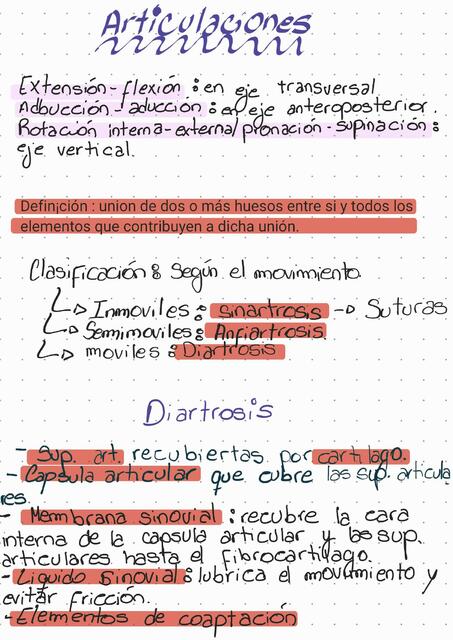 Articulaciones
Extensión-flexión : en eje transversal
Adbucción-aducción : en eje anteroposterior.
Rotación interna-external/pronación-supinación :
eje vertical.
Definición : union de dos o más huesos entre si y todos los
elementos que contribuyen a dicha unión.
Clasificación : según el movimiento
↳ Inmoviles : sinartrosis → Suturas
↳ Semimoviles : Anfiartrosis
↳ moviles : Diartrosis
Diartrosis
- Sup. art. recubiertas por cartilago.
- Capsula articular que cubre las sup. articula
res.
- Membrana sinovial : recubre la cara
interna de la capsula articular y las sup.
articulares hasta el fibrocartilago.
- Liquido sinovial : lubrica el movimiento y
evitar fricción.
- Elementos de coaptación